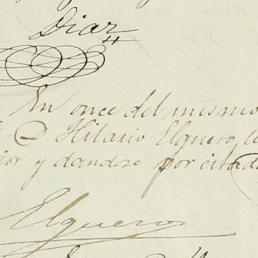 Diaz
En once del mismo
D. Hilario Elguero, le
ior y dandose por citado
Elguero